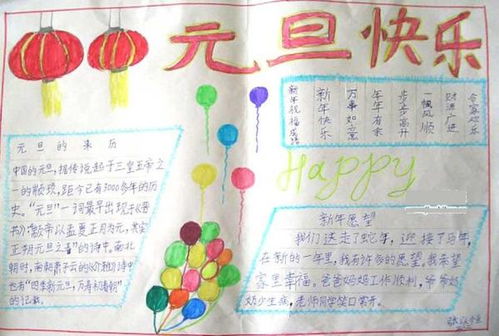 元旦快乐
元旦的来历
中国的元旦，据传说起于三皇五帝之
一的颛顼，距今已有3000多年的历
史。“元旦”一词最早出现于《晋
书》颛帝以孟夏正月为元，其实
正朔元旦之春”的诗中，南北
朝时，南朝萧子云的《介雅》诗中
也有“四季新元旦，万寿初春朝”
的记载。
新年祝福成语
新年快乐
万事如意
年年有余
步步高升
一帆风顺
财源广进
合家欢乐
Happy
新年愿望
我们送走了蛇年，迎接了马年，
在新的一年里，我有许多的愿望，我希望
家里幸福，爸爸妈妈工作顺利，爷爷奶
奶少生病，老师同学笑口常开。